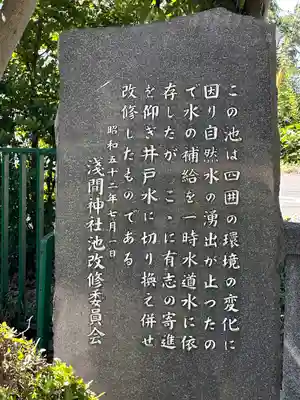 この池は四囲の環境の変化に
因り自然水の湧出が止つたの
で水の補給を一時水道水に依
存したが こゝに有志の寄進
を仰ぎ井戸水に切り換え併せ
改修したものである
昭和五十二年七月一日
淺間神社池改修委員会